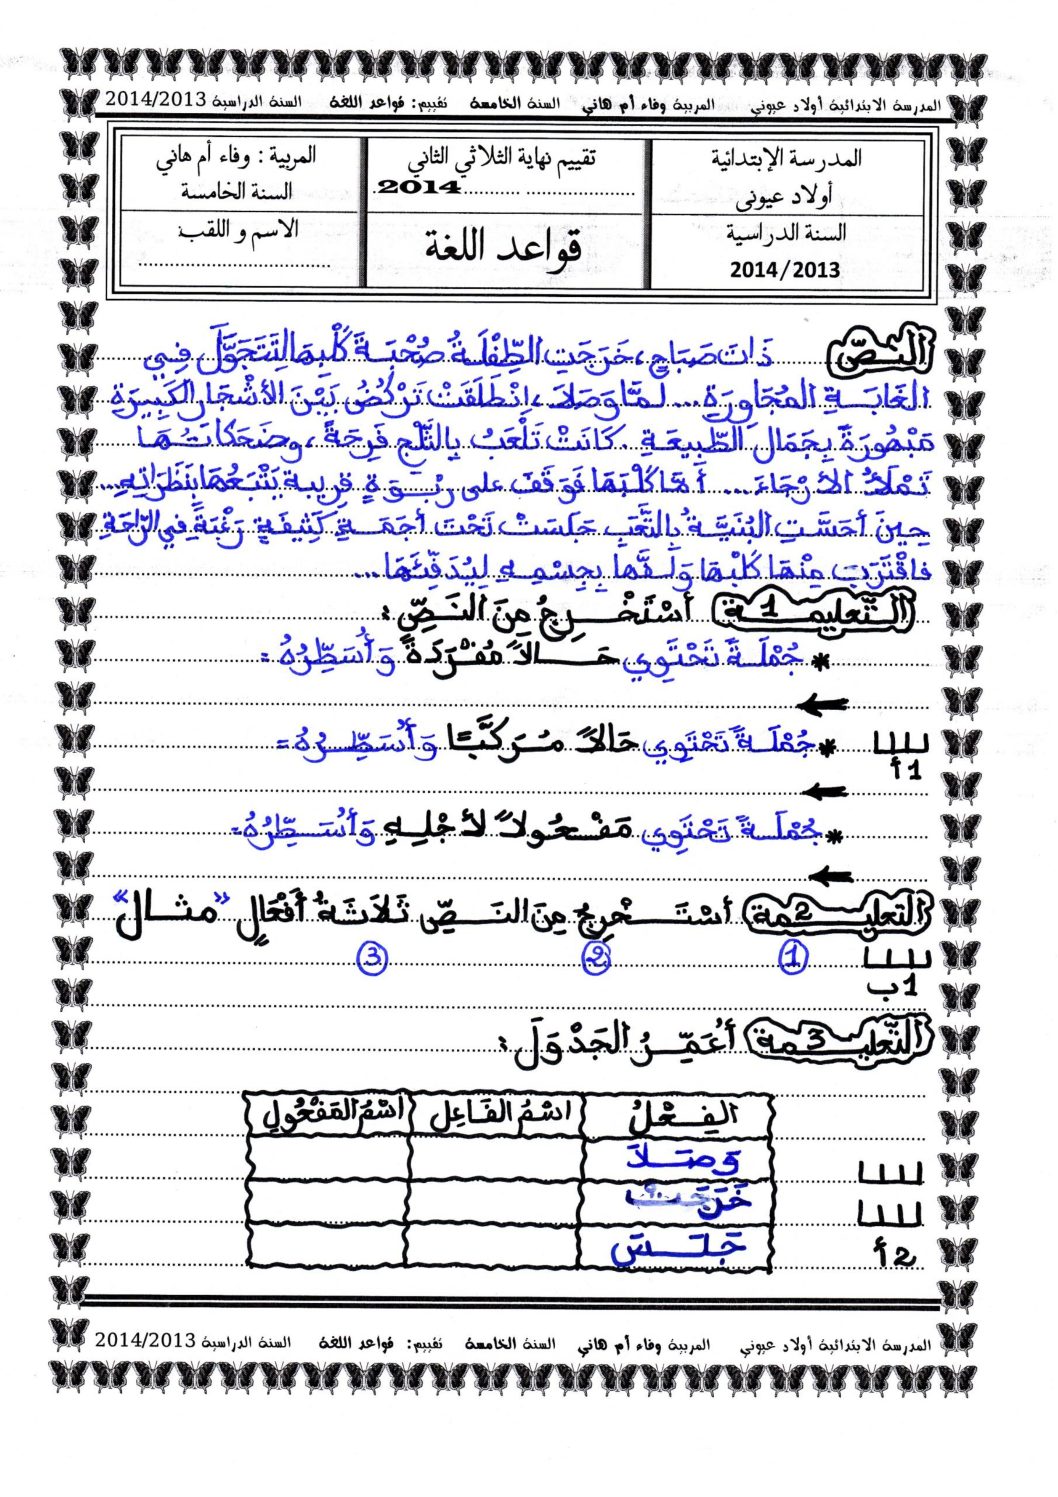 المدرسة الابتدائية أولاد عيوني المربية وفاء أم هاني السنة الخامسة تقييم: قواعد اللغة السنة الدراسية 2014/2013
المدرسة الإبتدائية
أولاد عيونى
السنة الدراسية
2014/2013
تقييم نهاية الثلاثي الثاني
2014
قواعد اللغة
المربية : وفاء أم هاني
السنة الخامسة
الاسم و اللقب:
النّصّ ذَاتَ صَبَاحٍ، خَرَجَتِ الطِّفْلَةُ صُحْبَةَ كَلْبِهَا لِتَتَجَوَّلَ فِي
الغَابَةِ المُجَاوِرَةِ... لمَّا وَصَلَا، اِنْطَلَقَتْ تَرْكُضُ بَيْنَ الأشْجَارِ الكَبِيرَةِ
مَبْهُورَةً بِجَمَالِ الطَّبِيعَةِ. كَانَتْ تَلْعَبُ بِالثَّلْجِ فَرِحَةً، وضَحَكَاتُهَا
تَمْلَأُ الأرْجَاءَ... أمَّا كَلْبُهَا فَوَقَفَ على رَبْوَةٍ قريبة يَتْبَعُهَا بِنَظَرَاتِهِ...
حِينَ أحَسَّتِ البُنَيَّةُ بِالتَّعَبِ جَلَسَتْ تَحْتَ أجَمَةٍ كَثِيفَةٍ رَغْبَةً فِي الرّاحَةِ
فاقْتَرَبَ مِنْهَا كَلْبُهَا وَلَفَّهَا بِجِسْمِهِ لِيُدَفِّئَهَا...
التّعليمـ1ـة أسْتَخْرِجُ مِنَ النَصِّ :
* جُمْلَةً تَحْتَوِي حَالاً مُفْرَدَةً وَأُسَطِّرُهُ =
* جُمْلَةً تَحْتَوِي حَالاً مُرَكَّبًا وَأُسَطِّرُهُ =
1أ
* جُمْلَةً تَحْتَوِي مَفْعُولاً لأجْلِهِ وَأُسَطِّرُهُ =
التعليـ2ـمة أسْتَخْرِجُ مِنَ النَصِّ ثَلَاثَةَ أفْعَالٍ "مثال"
1 2 3
1ب
التّعليـ3ـمة أُعَمِّرُ الجَدْوَلَ :
الفِعْلُ اسْمُ الفَاعِلِ اسْمُ المَفْعُولِ
وَصَلَا
خَرَجَتْ
جَلَسَ
2أ
المدرسة الابتدائية أولاد عيوني المربية وفاء أم هاني السنة الخامسة تقييم: قواعد اللغة السنة الدراسية 2014/2013